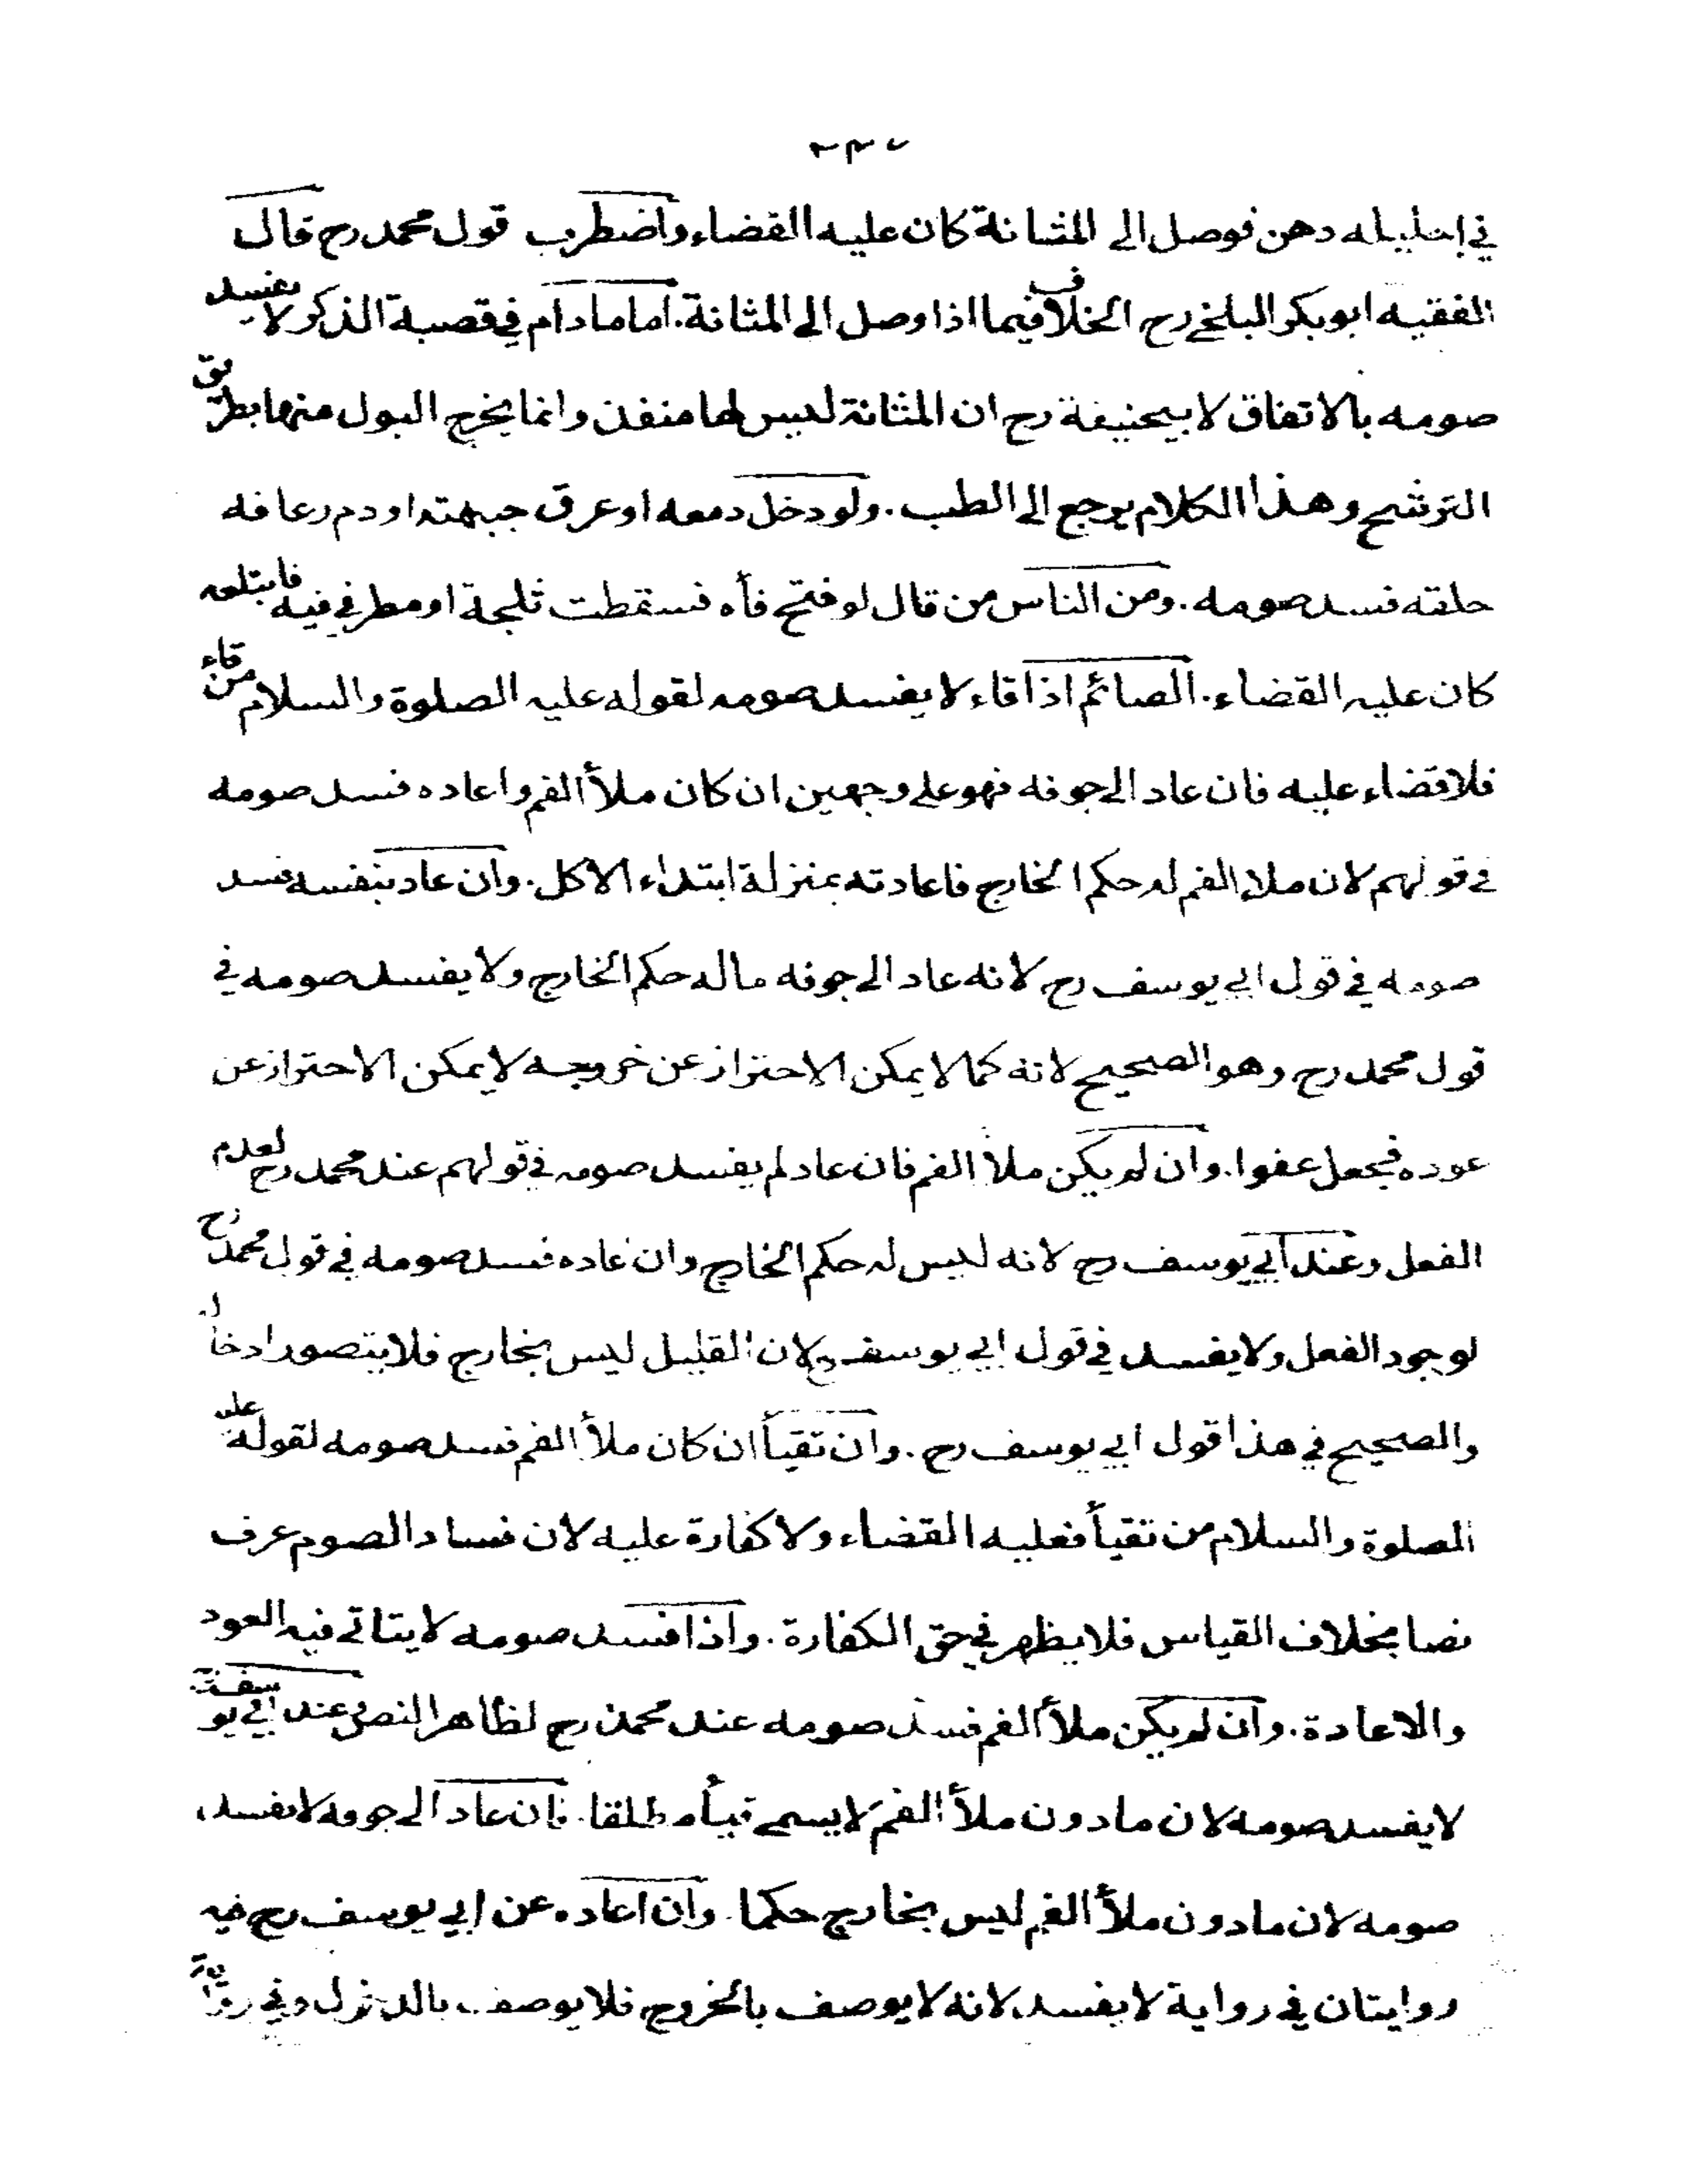 في إحليله دهن فوصل الى المثانة كان عليه القضاء واضطرب قول محمد رح قال
الفقيه ابوبكر البلخي رح الخلاف فيما اذا وصل الى المثانة. اما ما دام في قصبة الذكر لا يفسد
صومه بالاتفاق لابيحنيفة رح ان المثانة ليس لها منفذ وانما يخرج البول منها بطريق
الترشح وهذا الكلام يرجع الى الطب. ولو دخل دمعه او عرق جبهته او دم رعافه
حلقه فسد صومه. ومن الناس من قال لو فتح فأه فسقطت ثلجة او مطر في فيه فابتلعه
كان عليه القضاء. الصائم اذا قاء لا يفسد صومه لقوله عليه الصلوة والسلام من قاء
فلا قضاء عليه فان عاد الى جوفه فهو على وجهين ان كان ملأ الفم واعاده فسد صومه
في قولهم لان ملاء الفم له حكم الخارج فاعادته بمنزلة ابتداء الاكل. وان عاد بنفسه فسد
صومه في قول ابي يوسف رح لانه عاد الى جوفه ماله حكم الخارج ولا يفسد صومه في
قول محمد رح وهو الصحيح لانه كما لا يمكن الاحتراز عن خروجه لا يمكن الاحتراز عن
عوده فجعل عفوا. وان لم يكن ملأ الفم فان عاد لم يفسد صومه في قولهم عند محمد رح لعدم
الفعل وعند أبي يوسف رح لانه ليس له حكم الخارج وان اعاده فسد صومه في قول محمد رح
لوجود الفعل ولا يفسد في قول ابي يوسف رح لان القليل ليس بخارج فلا يتصور ادخاله
والصحيح في هذا قول ابي يوسف رح. وان تقيأ ان كان ملأ الفم فسد صومه لقوله عليه
الصلوة والسلام من تقيأ فعليه القضاء ولا كفارة عليه لان فساد الصوم عرف
نصا بخلاف القياس فلا يظهر في حق الكفارة. واذا فسد صومه لا يتاتى فيه العود
والاعادة. وان لم يكن ملأ الفم فسد صومه عند محمد رح لظاهر النص وعند ابي يوسف رح
لا يفسد صومه لان ما دون ملأ الفم لا يسمى قيأ مطلقا. فان عاد الى جوفه لا يفسد
صومه لان ما دون ملأ الفم ليس بخارج حكما. وان اعاده عن ابي يوسف رح فيه
روايتان في رواية لا يفسد لانه لا يوصف بالخروج فلا يوصف بالدخول وفي رواية